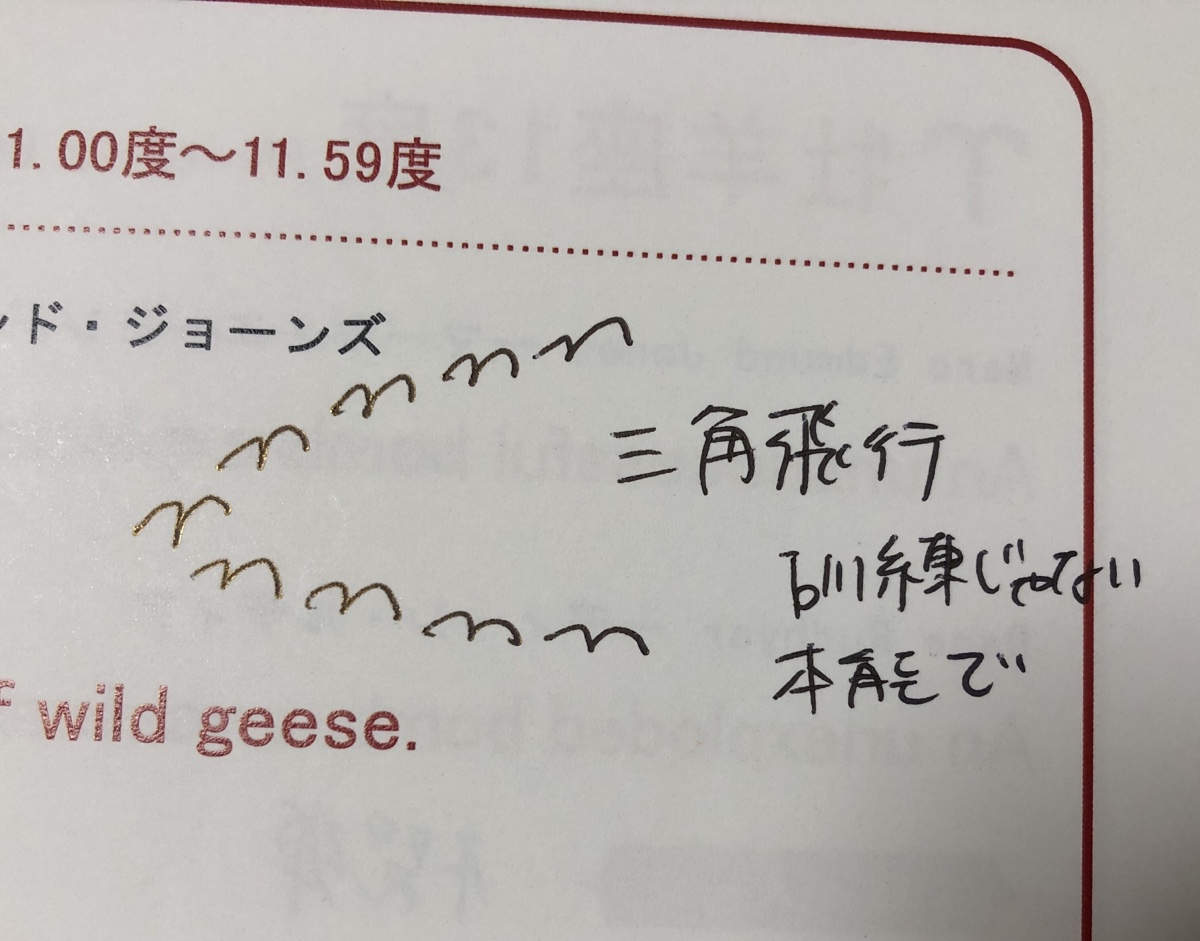 1.00度～11.59度
ンド・ジョーンズ
三角飛行
訓練じゃない
本能で
wild geese.